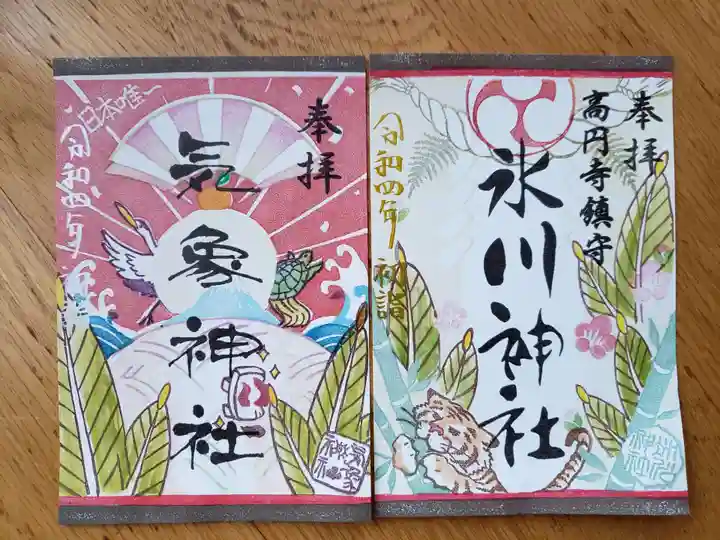 奉拝
気象神社
日本唯一
令和四年初詣
奉拝
高円寺鎮守
氷川神社
令和四年初詣